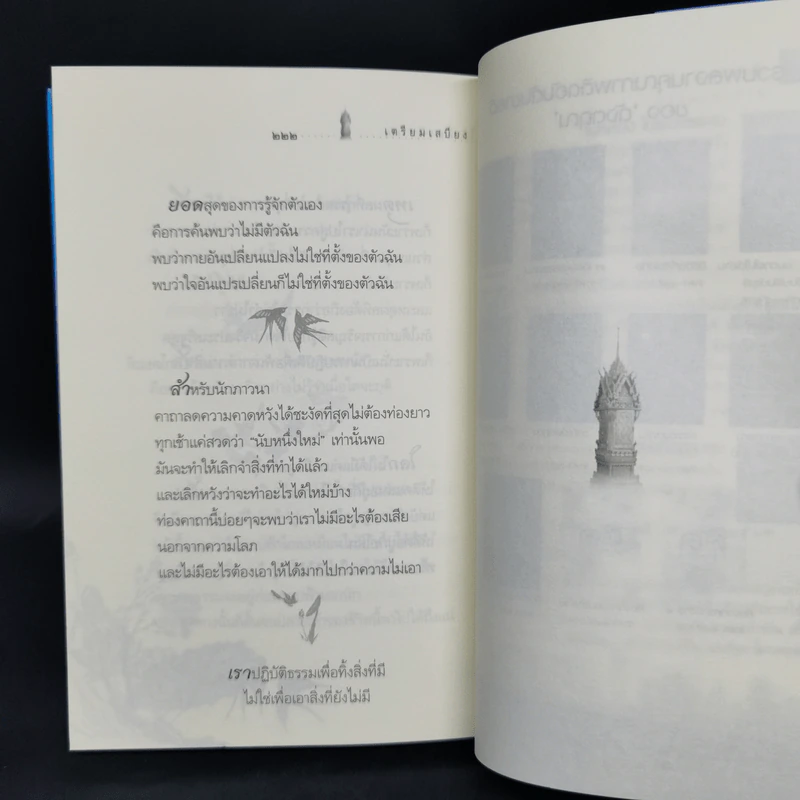 ๒๒๒ เตรียมเสบียง
ยอดสุดของการรู้จักตัวเอง
คือการค้นพบว่าไม่มีตัวฉัน
พบว่ากายอันเปลี่ยนแปลงไม่ใช่ที่ตั้งของตัวฉัน
พบว่าใจอันแปรเปลี่ยนก็ไม่ใช่ที่ตั้งของตัวฉัน
สำหรับนักภาวนา
คาถาลดความคาดหวังได้ชะงัดที่สุดไม่ต้องท่องยาว
ทุกเช้าแค่สวดว่า “นับหนึ่งใหม่” เท่านั้นพอ
มันจะทำให้เลิกจำสิ่งที่ทำได้แล้ว
และเลิกหวังว่าจะทำอะไรได้ใหม่บ้าง
ท่องคาถานี้บ่อยๆจะพบว่าเราไม่มีอะไรต้องเสีย
นอกจากความโลภ
และไม่มีอะไรต้องเอาให้ได้มากไปกว่าความไม่เอา
เราปฏิบัติธรรมเพื่อทิ้งสิ่งที่มี
ไม่ใช่เพื่อเอาสิ่งที่ยังไม่มี